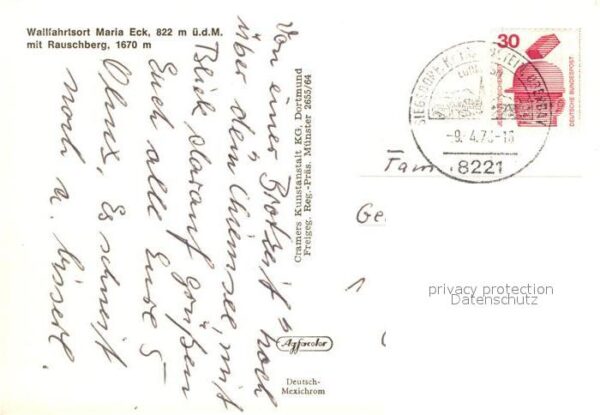 Wallfahrtsort Maria Eck, 822 m ü.d.M.
mit Rauschberg, 1670 m
Von einer Brotzeit "hoch
über dem Chiemsee" mit
Blick darauf grüßen
Euch alle Eure 5
Es schneit
noch a bisserl.
Cramers Kunstanstalt KG, Dortmund
Freigeg. Reg.-Präs. Münster 2655/64
Agfacolor
Deutsch-
Mexichrom
30
DEUTSCHE BUNDESPOST
SIEGSDORF
-9. 4.76-16
8221
Fam.
Ge
privacy protection
Datenschutz